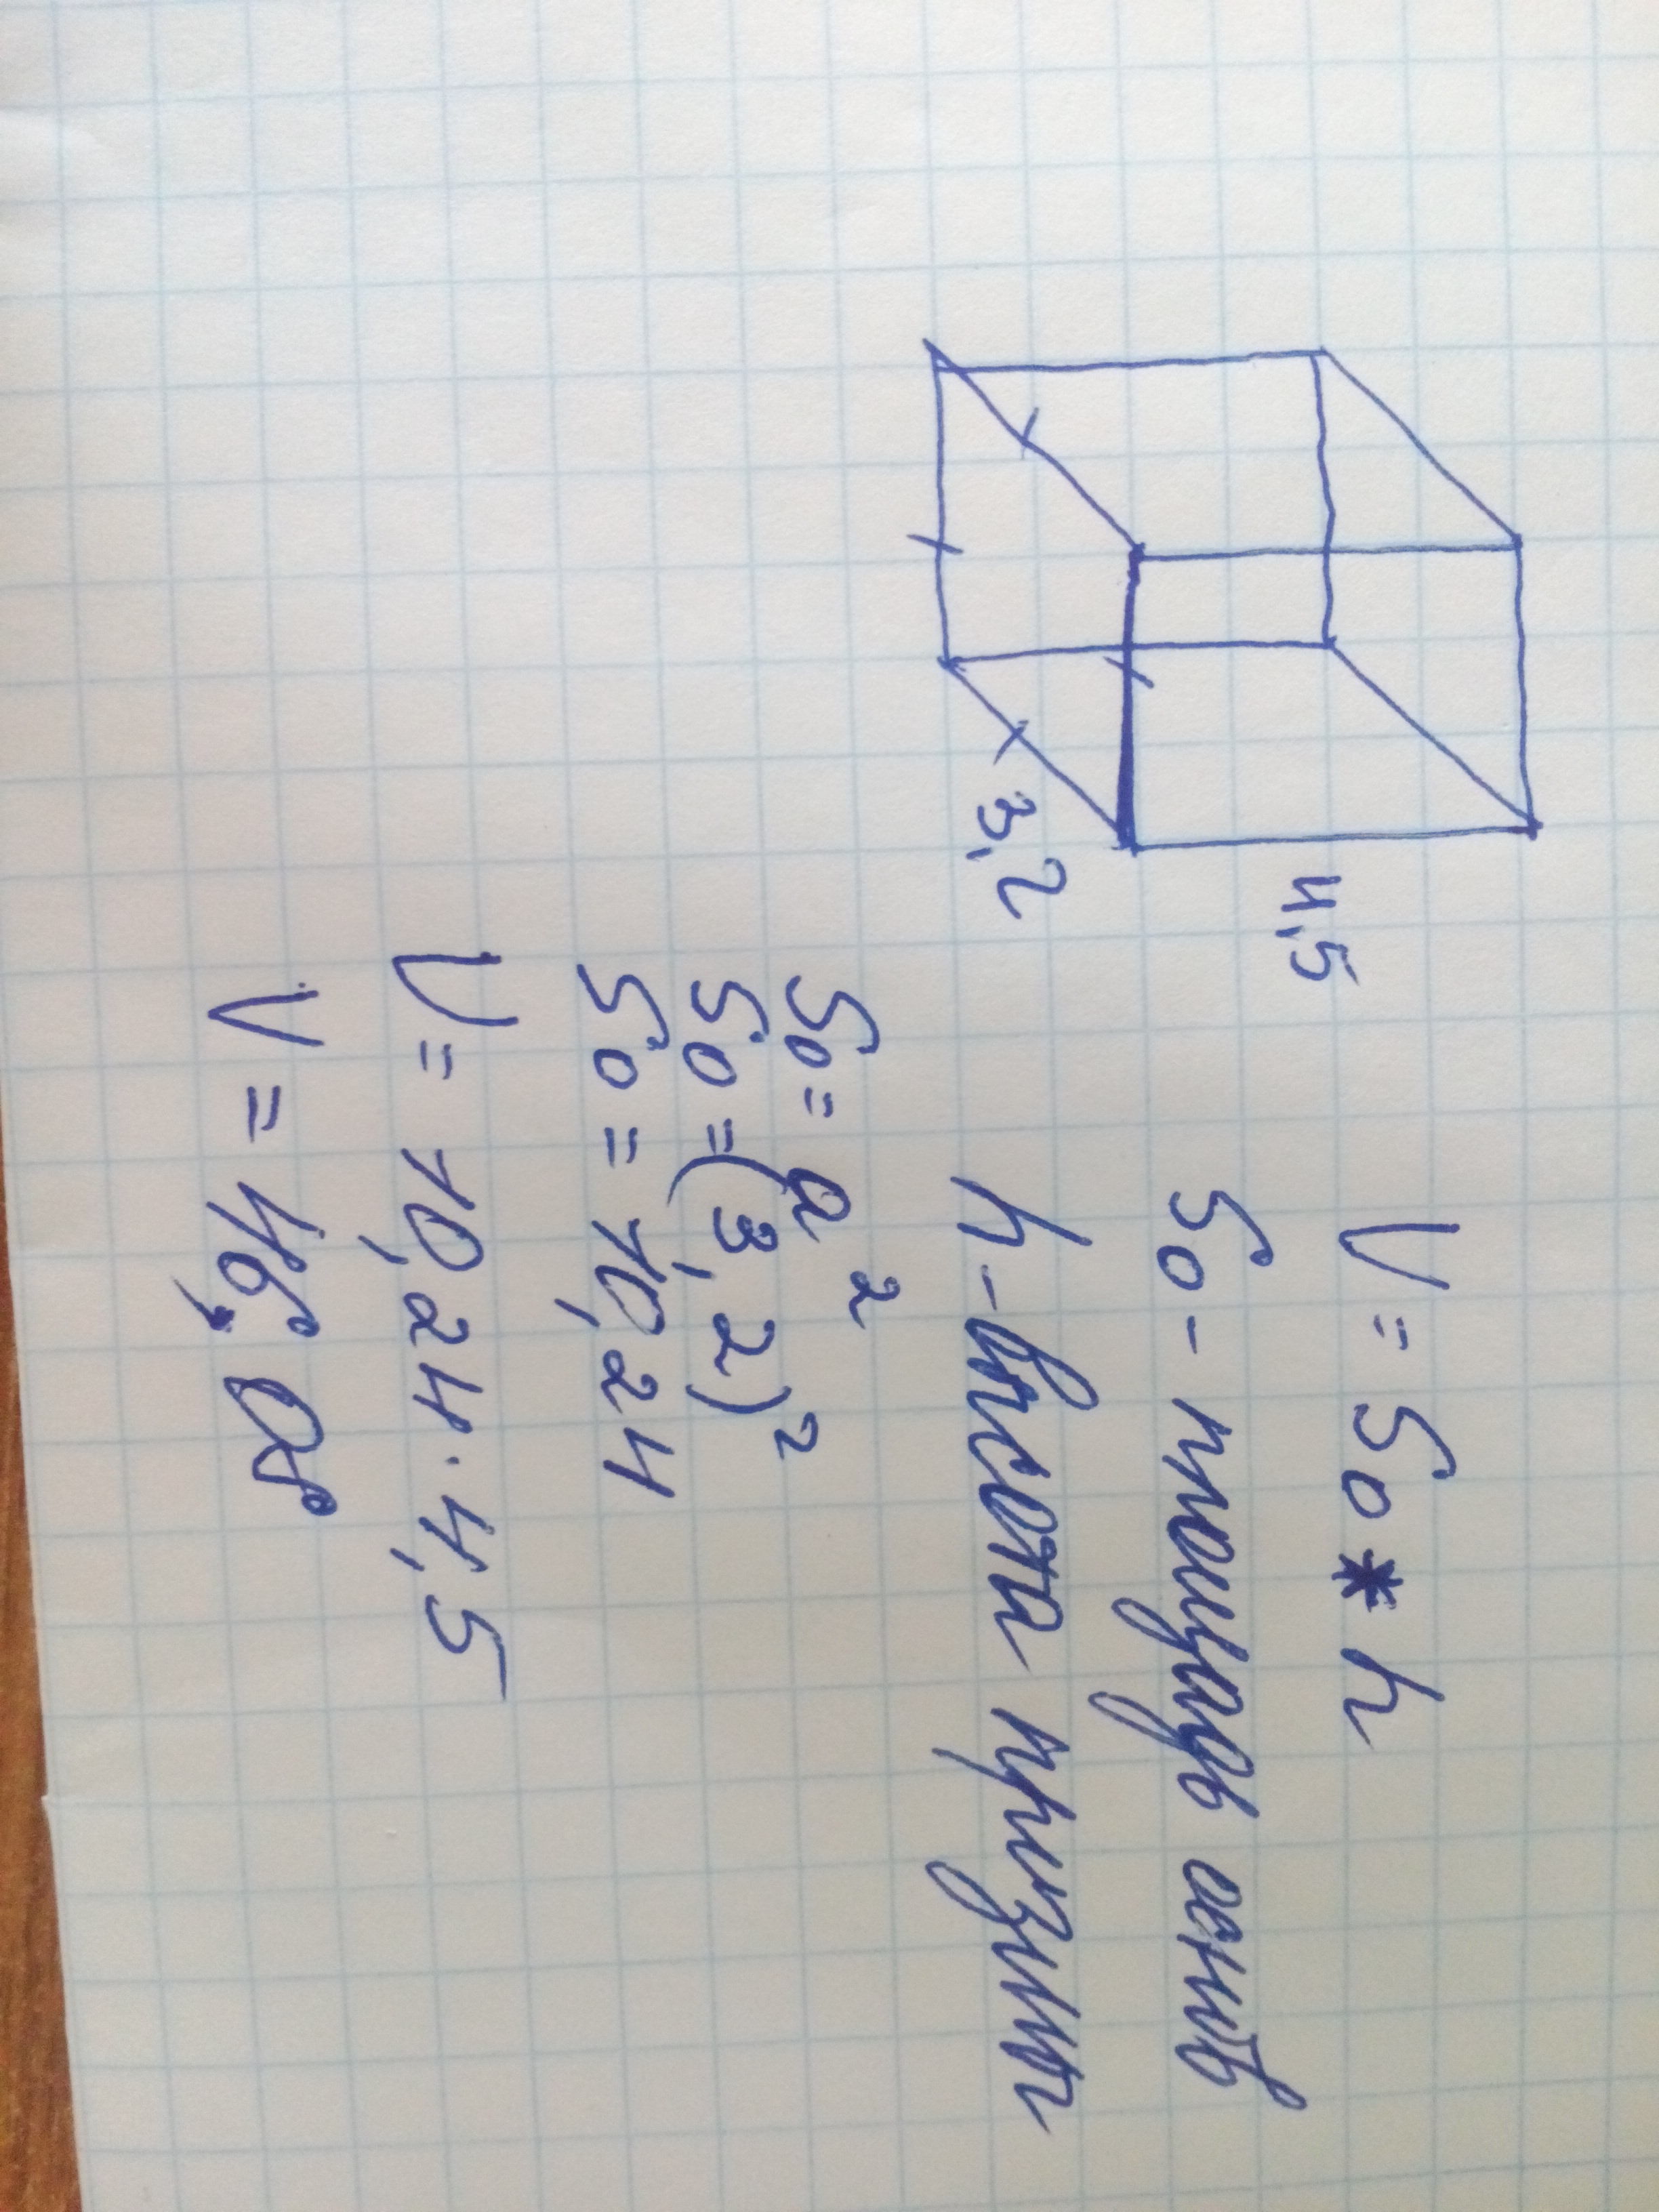 4,5
3,2
V = So * h
So - площадь оснив
h - высота призмы
So = a²
So = (3,2)²
So = 10,24
V = 10,24 · 4,5
V = 46,08